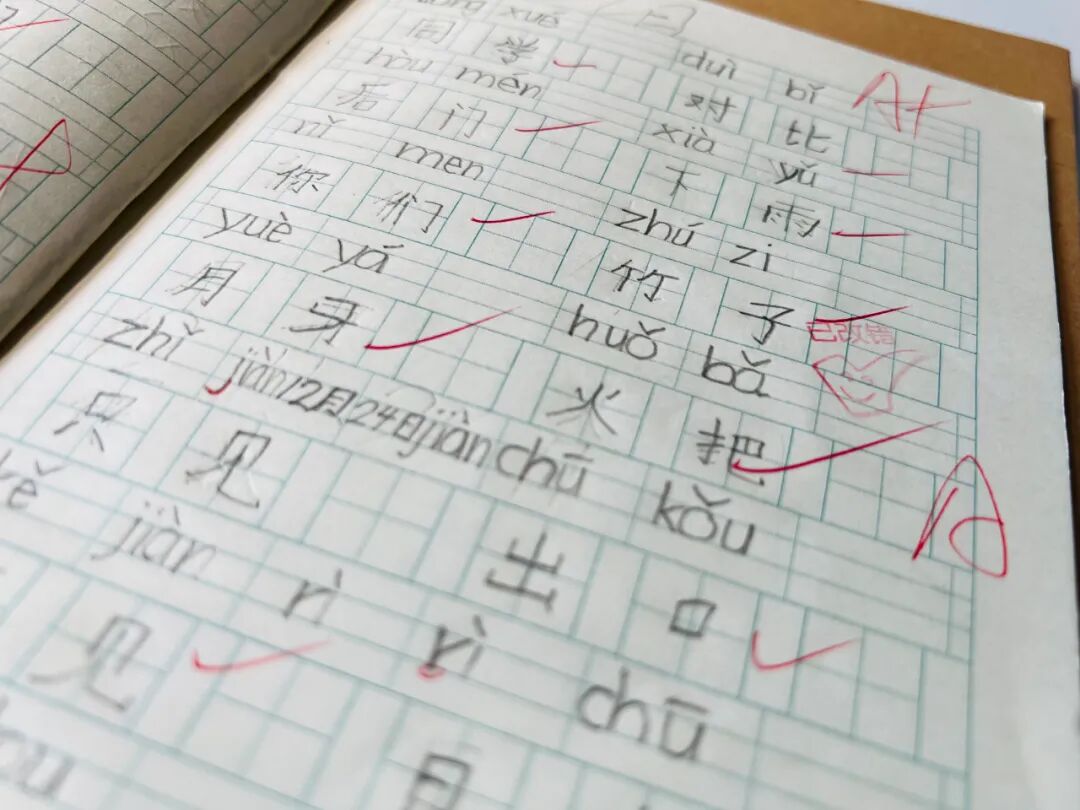 xué duì bǐ
同学 对比 A+
hòu mén xià yǔ
后门 下雨
nǐ men zhú zi
你们 竹子
已改错
yuè yá huǒ bǎ
月牙 火把
zhǐ jiàn 12月24日 jiàn chū kǒu
只见 出口
A
jiàn rì rì chū
见 日